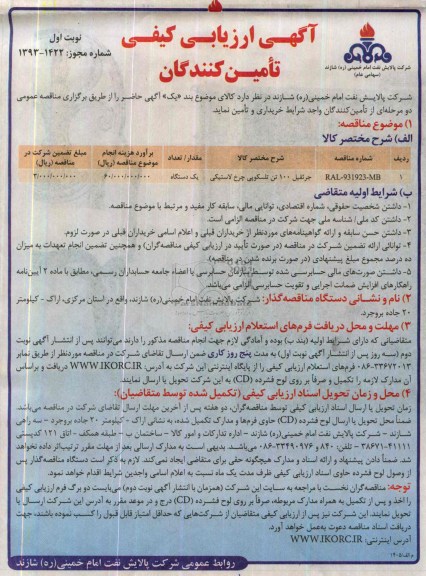 آگهی ارزیابی کیفی
تأمین‌کنندگان
نوبت اول
شماره مجوز: ۱۴۲۲-۱۳۹۳
شرکت پالایش نفت امام خمینی (ره) شازند
(سهامی عام)
شرکت پالایش نفت امام خمینی(ره) شازند در نظر دارد کالای موضوع بند «یک» آگهی حاضر را از طریق برگزاری مناقصه عمومی
دو مرحله‌ای از تأمین‌کنندگان واجد شرایط خریداری و تأمین نماید.
۱) موضوع مناقصه:
الف) شرح مختصر کالا
ردیف شماره مناقصه شرح مختصر کالا مقدار/ تعداد برآورد هزینه انجام موضوع مناقصه (ریال) مبلغ تضمین شرکت در مناقصه (ریال)
۱ RAL-931923-MB جرثقیل ۱۰۰ تن تلسکوپی چرخ لاستیکی یک دستگاه ۶۰/۰۰۰/۰۰۰/۰۰۰ ۳/۰۰۰/۰۰۰/۰۰۰
ب) شرایط اولیه متقاضی
۱- داشتن شخصیت حقوقی، شماره اقتصادی، توانایی مالی، سابقه کار مفید و مرتبط با موضوع مناقصه.
۲- داشتن کد ملی/ شناسه ملی جهت شرکت در مناقصه الزامی است.
۳- داشتن حسن سابقه و ارائه گواهینامه‌های موردنظر از خریداران قبلی و اعلام اسامی خریداران قبلی در صورت لزوم.
۴- توانائی ارائه تضمین شرکت در مناقصه (در صورت تأیید در ارزیابی کیفی مناقصه‌گران) و همچنین تضمین انجام تعهدات به میزان
ده درصد مجموع مبلغ پیشنهادی (در صورت برنده شدن در مناقصه)
۵- داشتن صورت‌های مالی حسابرسی شده توسط سازمان حسابرسی یا اعضاء جامعه حسابداران رسمی، مطابق با ماده ۲ آیین‌نامه
راهکارهای افزایش ضمانت اجرایی و تقویت حسابرسی الزامی می‌باشد.
۲) نام و نشانی دستگاه مناقصه‌گذار: شرکت پالایش نفت امام خمینی(ره) شازند، واقع در استان مرکزی، اراک - کیلومتر
۲۰ جاده بروجرد.
۳) مهلت و محل دریافت فرم‌های استعلام ارزیابی کیفی:
متقاضیانی که دارای شرایط اولیه (بند ب) بوده و آمادگی لازم جهت انجام مناقصه مذکور را دارند می‌توانند پس از انتشار آگهی نوبت
دوم (سه روز پس از انتشار آگهی نوبت اول) به مدت پنج روز کاری ضمن ارسال تقاضای شرکت در مناقصه موردنظر از طریق نمابر
۳۳۶۷۲۰۱۳-۰۸۶ فرم‌های استعلام ارزیابی کیفی را از پایگاه اینترنتی این شرکت به آدرس: WWW.IKORC.IR دریافت و براساس
آن مدارک لازمه را تکمیل و صرفاً بر روی لوح فشرده (CD) به این شرکت تحویل یا ارسال نمایند.
۴) محل و زمان تحویل اسناد ارزیابی کیفی (تکمیل شده توسط متقاضیان):
زمان تحویل یا ارسال اسناد ارزیابی کیفی توسط مناقصه‌گران، دو هفته پس از آخرین مهلت ارسال تقاضای شرکت در مناقصه می‌باشد.
ضمناً محل تحویل یا ارسال لوح فشرده (CD) حاوی فرم‌ها و مدارک تکمیل شده، به نشانی اراک - کیلومتر ۲۰ جاده بروجرد - سه راهی
شازند - شرکت پالایش نفت امام خمینی (ره) شازند - اداره تدارکات و امور کالا - ساختمان ب - طبقه همکف - اتاق ۱۲۱ کدپستی
۳۸۶۷۱۴۱۱۱۱ - تلفن: ۸۴۰ و ۳۳۴۹۰۹۷۶-۰۸۶ می‌باشد. بدیهی است به مدارک ارسالی بعد از مهلت مقرر ترتیب‌اثر داده نخواهد
شد. ضمناً دادن پیشنهاد و ارائه اسناد و مدارک هیچگونه حقی برای متقاضی ایجاد نمی‌کند. لازم به ذکر است دستگاه مناقصه‌گذار پس
از وصول لوح فشرده حاوی اسناد ارزیابی کیفی ظرف مدت یک ماه نسبت به اعلام اسامی واجدین شرایط اقدام خواهد نمود.
توجه: مناقصه‌گران نخست با مراجعه به سایت این شرکت (همزمان با انتشار آگهی نوبت دوم) می‌بایست دو برگ فرم ارزیابی کیفی
را اخذ و پس از تکمیل به همراه مدارک مربوطه، صرفاً بر روی لوح فشرده (CD) درج و در موعد مقرر به آدرس این شرکت ارسال یا
تحویل نمایند. این شرکت نیز پس از ارزیابی کیفی متقاضیان از شرکت‌هایی که حداقل امتیاز قابل قبول را کسب نموده باشند، جهت
دریافت اسناد مناقصه دعوت به‌عمل خواهد آورد.
آدرس اینترنتی: WWW.IKORC.IR
روابط عمومی شرکت پالایش نفت امام خمینی(ره) شازند